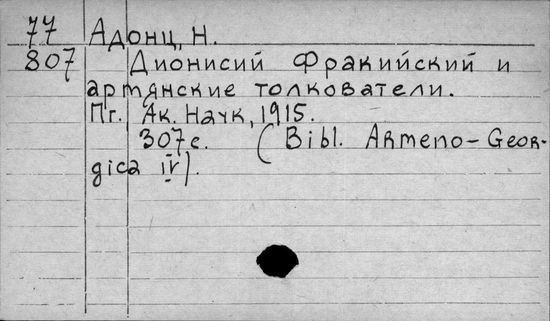 77 Адонц, Н.
807 Дионисий Фракийский и
артянские толкователи.
Пг. Ак. Наук, 1915.
307 с. (Bibl. Armeno-Geor-
gica IV).